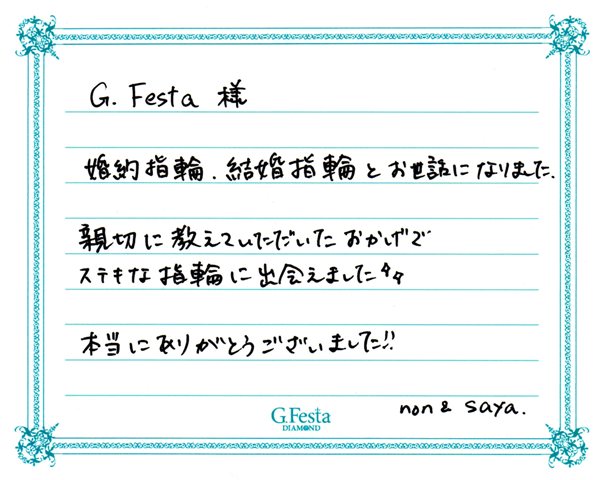 G. Festa 様
婚約指輪.結婚指輪とお世話になりました.
親切に教えていただいたおかげで
ステキな指輪に出会えました
本当にありがとうございました!!
non & saya.
G.Festa
DIAMOND